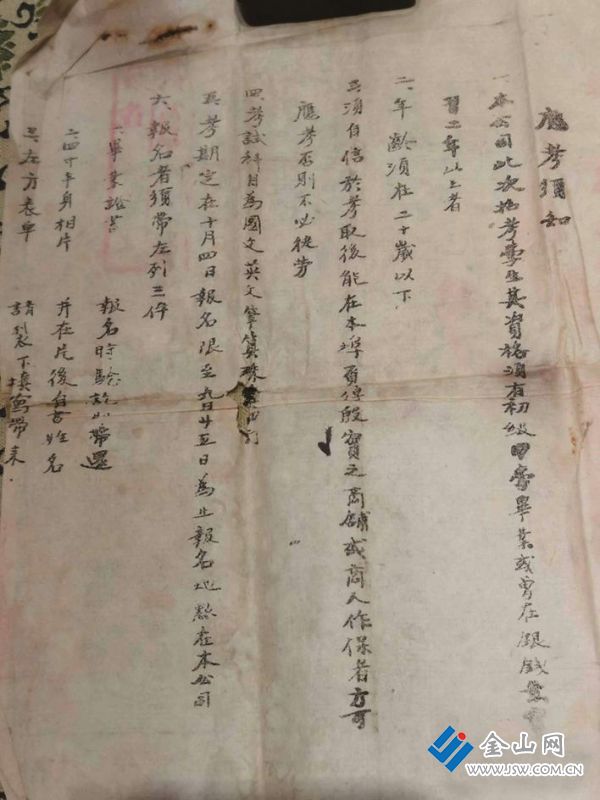 應考須知
一、本公司此次招考學生其資格須有初級中學畢業或曾在銀錢業
習二年以上者
二、年齡須在二十歲以下
三、須自信於考取後能在本埠覓得殷實之商舖或商人作保者方可
應考否則不必徒勞
四、考試科目為國文英文筆算珠算
五、考期定在十月四日報名限至九月廿五日為止報名地點在本公司
六、報名者須帶左列三件
一、畢業證書 報名時驗訖帶還
二、四寸半身相片 并在片後自書姓名
三、左方表單 請裂下填寫帶來
金山网
WWW.JSW.COM.CN